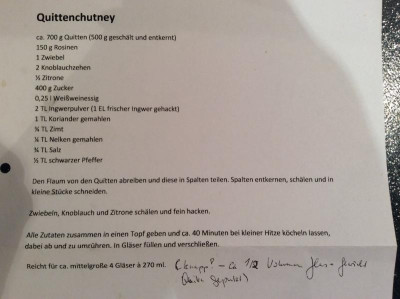 Quittenchutney
ca. 700 g Quitten (500 g geschält und entkernt)
150 g Rosinen
1 Zwiebel
2 Knoblauchzehen
½ Zitrone
400 g Zucker
0,25 l Weißweinessig
2 TL Ingwerpulver (1 EL frischer Ingwer gehackt)
1 TL Koriander gemahlen
¼ TL Zimt
¼ TL Nelken gemahlen
¾ TL Salz
½ TL schwarzer Pfeffer
Den Flaum von den Quitten abreiben und diese in Spalten teilen. Spalten entkernen, schälen und in
kleine Stücke schneiden.
Zwiebeln, Knoblauch und Zitrone schälen und fein hacken.
Alle Zutaten zusammen in einen Topf geben und ca. 40 Minuten bei kleiner Hitze köcheln lassen,
dabei ab und zu umrühren. In Gläser füllen und verschließen.
Reicht für ca. mittelgroße 4 Gläser à 270 ml. - ca 1/2 Volumen